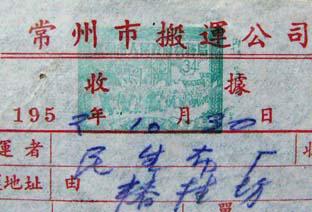 常州市搬運公司
收據
195 年10月30日
運者 民生布厂 收
運地址 由
單